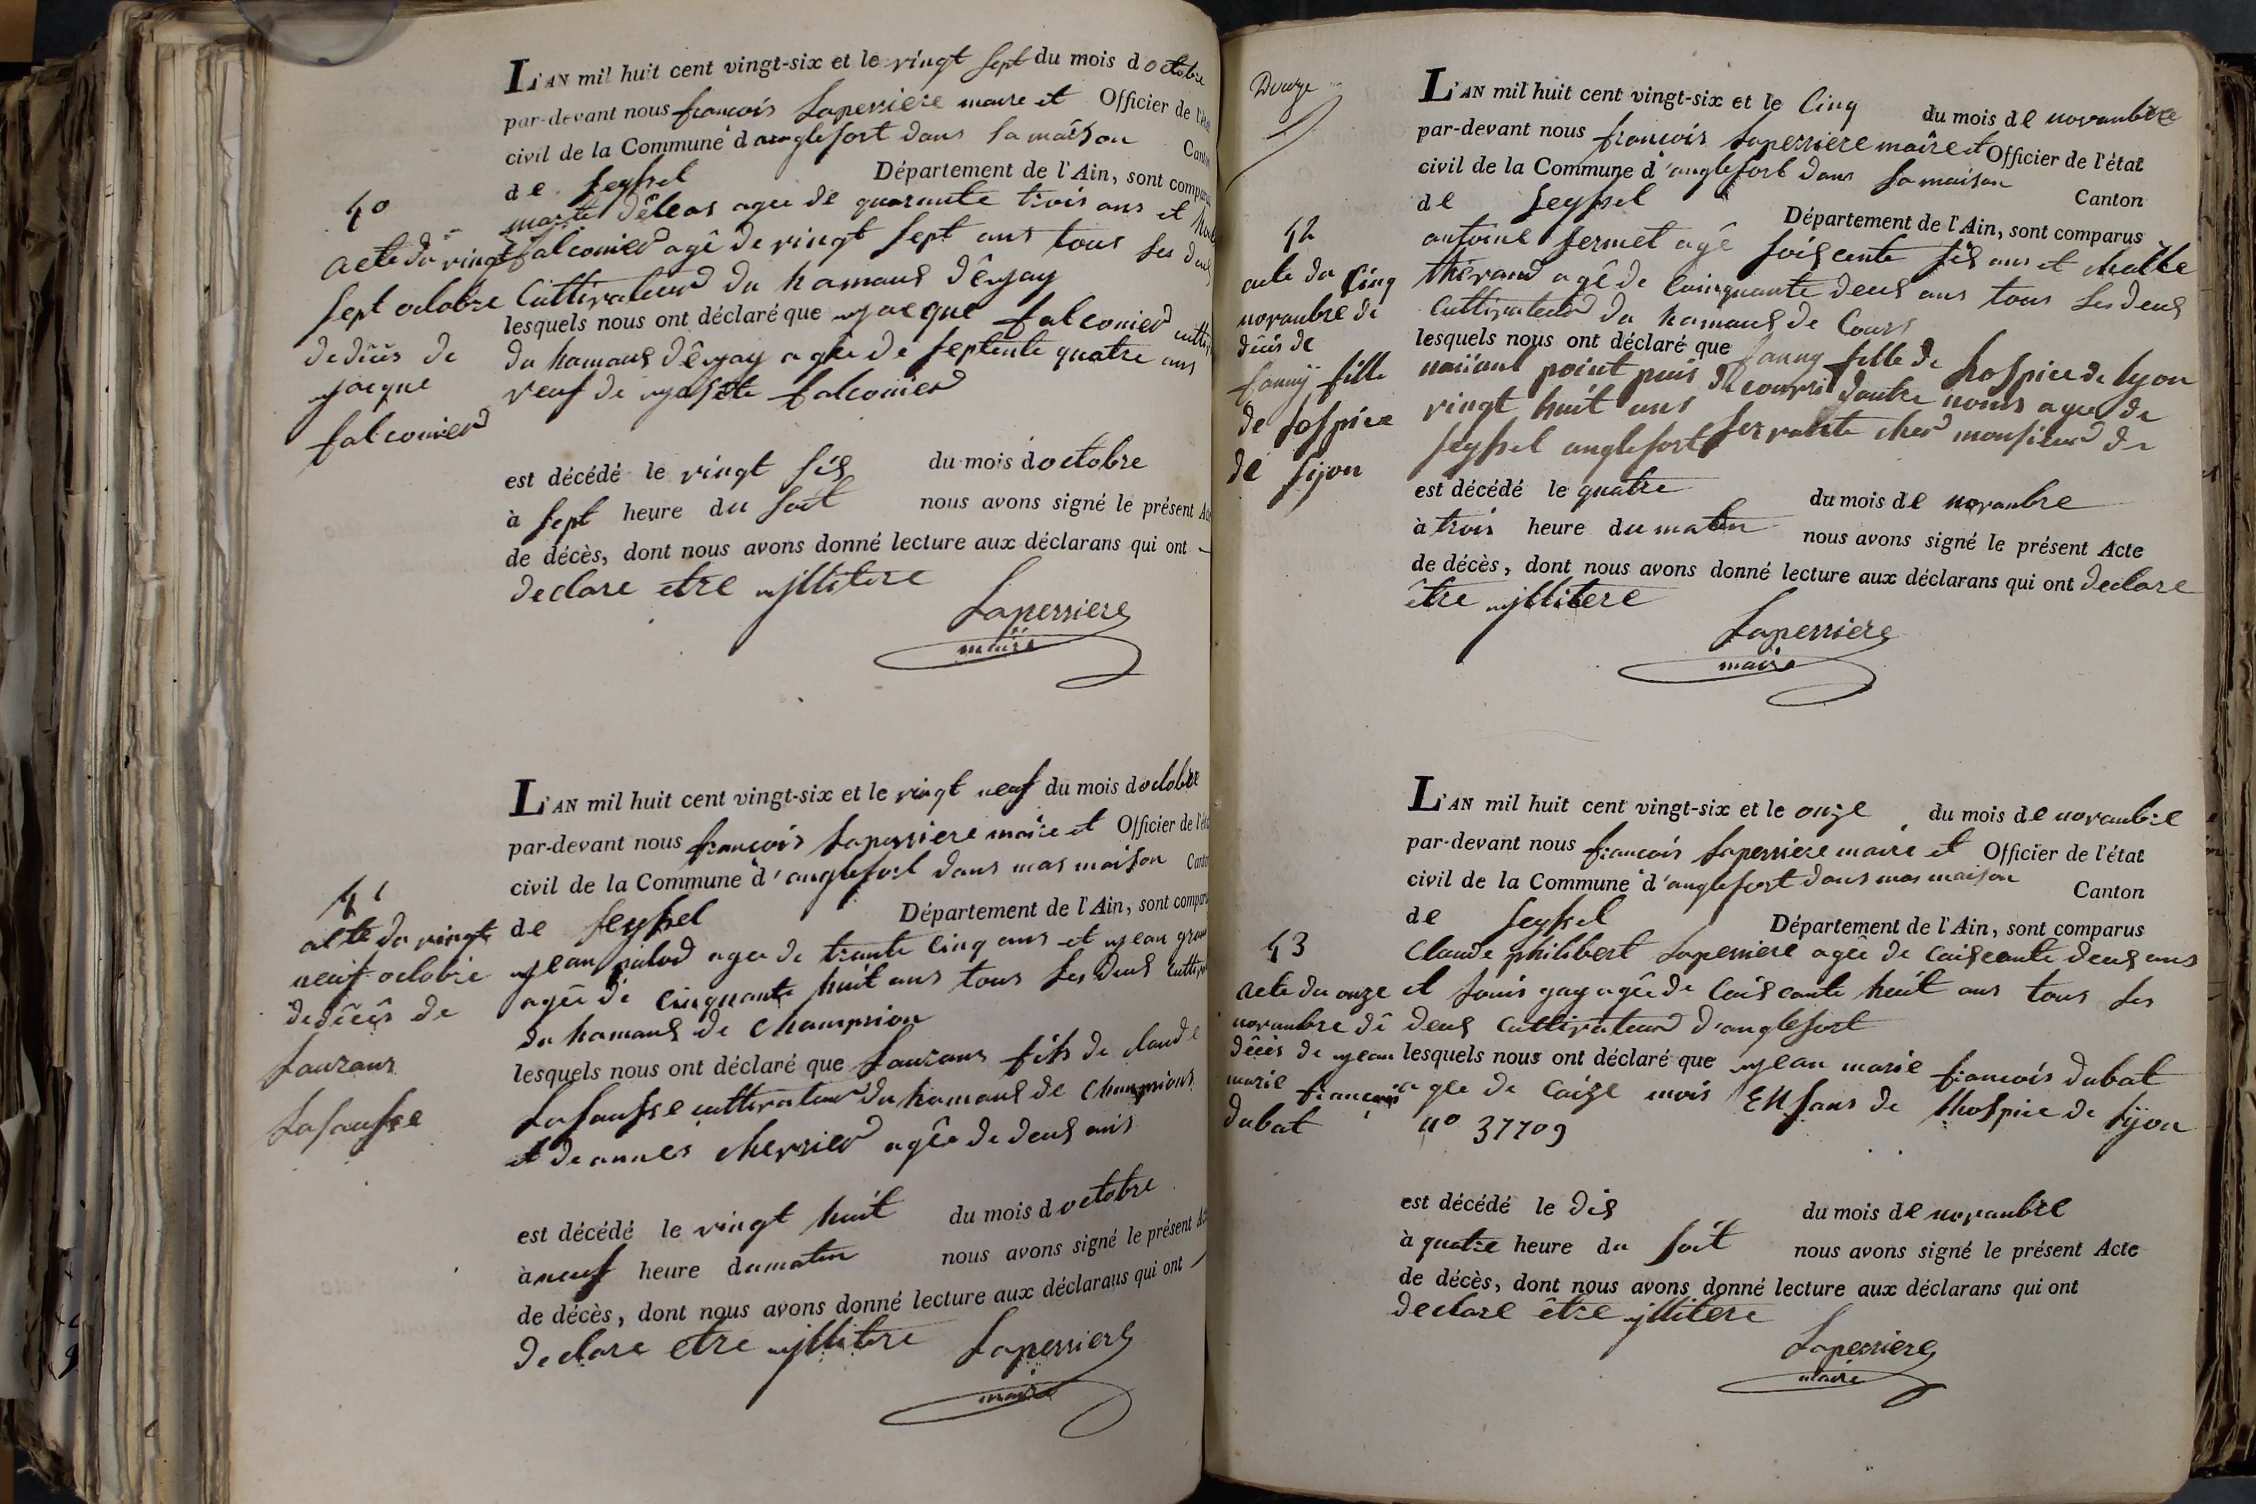 L'AN mil huit cent vingt-six et le vingt sept du mois doctobre
par-devant nous francois Laperriere maire et Officier de l'état
civil de la Commune d'anglefort dans sa maison Canton
de seyssel Département de l'Ain, sont comparus
agee de quarante trois ans et
falconier agê de vingt sept ans tous les deus
Cultivateur du hamaus
lesquels nous ont déclaré que jacque falconier
du hamaus agee de septente quatre ans
veuf de falconier
est décédé le vingt sis du mois doctobre
à sept heure du soit nous avons signé le présent
de décès, dont nous avons donné lecture aux déclarans qui ont
declare etre jllitere
Laperriere
maire
40
acte du vingt
sept octobre
de dêcês de
jacque
falconier
L'AN mil huit cent vingt-six et le vingt neuf du mois doctobre
par-devant nous francois Laperriere maire et Officier de l'état
civil de la Commune d'anglefort dans mas maison
de seyssel Département de l'Ain, sont comparus
jean agee de trante cinq ans et jean
agêe de cinquante huit ans tous les deus
du hamaus de Champrion
lesquels nous ont déclaré que Laurans fils de claude
Lasausse cultivateur du hamaus de Champrion
et de annes agêe de deus ans
est décédé le vingt huit du mois doctobre
à neuf heure du matin nous avons signé le présent
de décès, dont nous avons donné lecture aux déclarans qui ont
declare etre jllitere
Laperriere
maire
41
acte du vingt
neuf octobre
de dêcês de
Laurans
Lasausse
Douze
L'AN mil huit cent vingt-six et le Cinq du mois de novanbre
par-devant nous francois Laperriere maire et Officier de l'état
civil de la Commune d'anglefort dans sa maison Canton
de Seyssel Département de l'Ain, sont comparus
antoine fermet agê soiscente sis ans et
agê de Cainquante deus ans tous les deus
Cultivateur du hamaus de Cours
lesquels nous ont déclaré que fanny fille de hospice de lyon
point dautre noms agee de
vingt huit ans servante cher monsieur de
seyssel anglefort
est décédé le quatre du mois de novanbre
à trois heure du matin nous avons signé le présent Acte
de décès, dont nous avons donné lecture aux déclarans qui ont declare
être jllitere
Laperriere
maire
42
acte du Cinq
novanbre de
dêcês de
fanny fille
de Lospice
de lyon
L'AN mil huit cent vingt-six et le onze du mois de novanbre
par-devant nous francois Laperriere maire et Officier de l'état
civil de la Commune d'anglefort dans mas maison Canton
de seyssel Département de l'Ain, sont comparus
Claude philibert Laperriere agêe de caiscante deus ans
et Louis gay agêe de Caiscante huit ans tous les
deus Cultivateur d'anglefort
lesquels nous ont déclaré que jean marie francois dubat
agee de Caize mois Enfans de lhospice de lyon
no 37709
est décédé le dis du mois de novanbre
à quatre heure du soit nous avons signé le présent Acte
de décès, dont nous avons donné lecture aux déclarans qui ont
declare être jllitere
Laperriere
maire
43
acte du onze
novanbre dê
dêcês de jean
marie francois
dubat